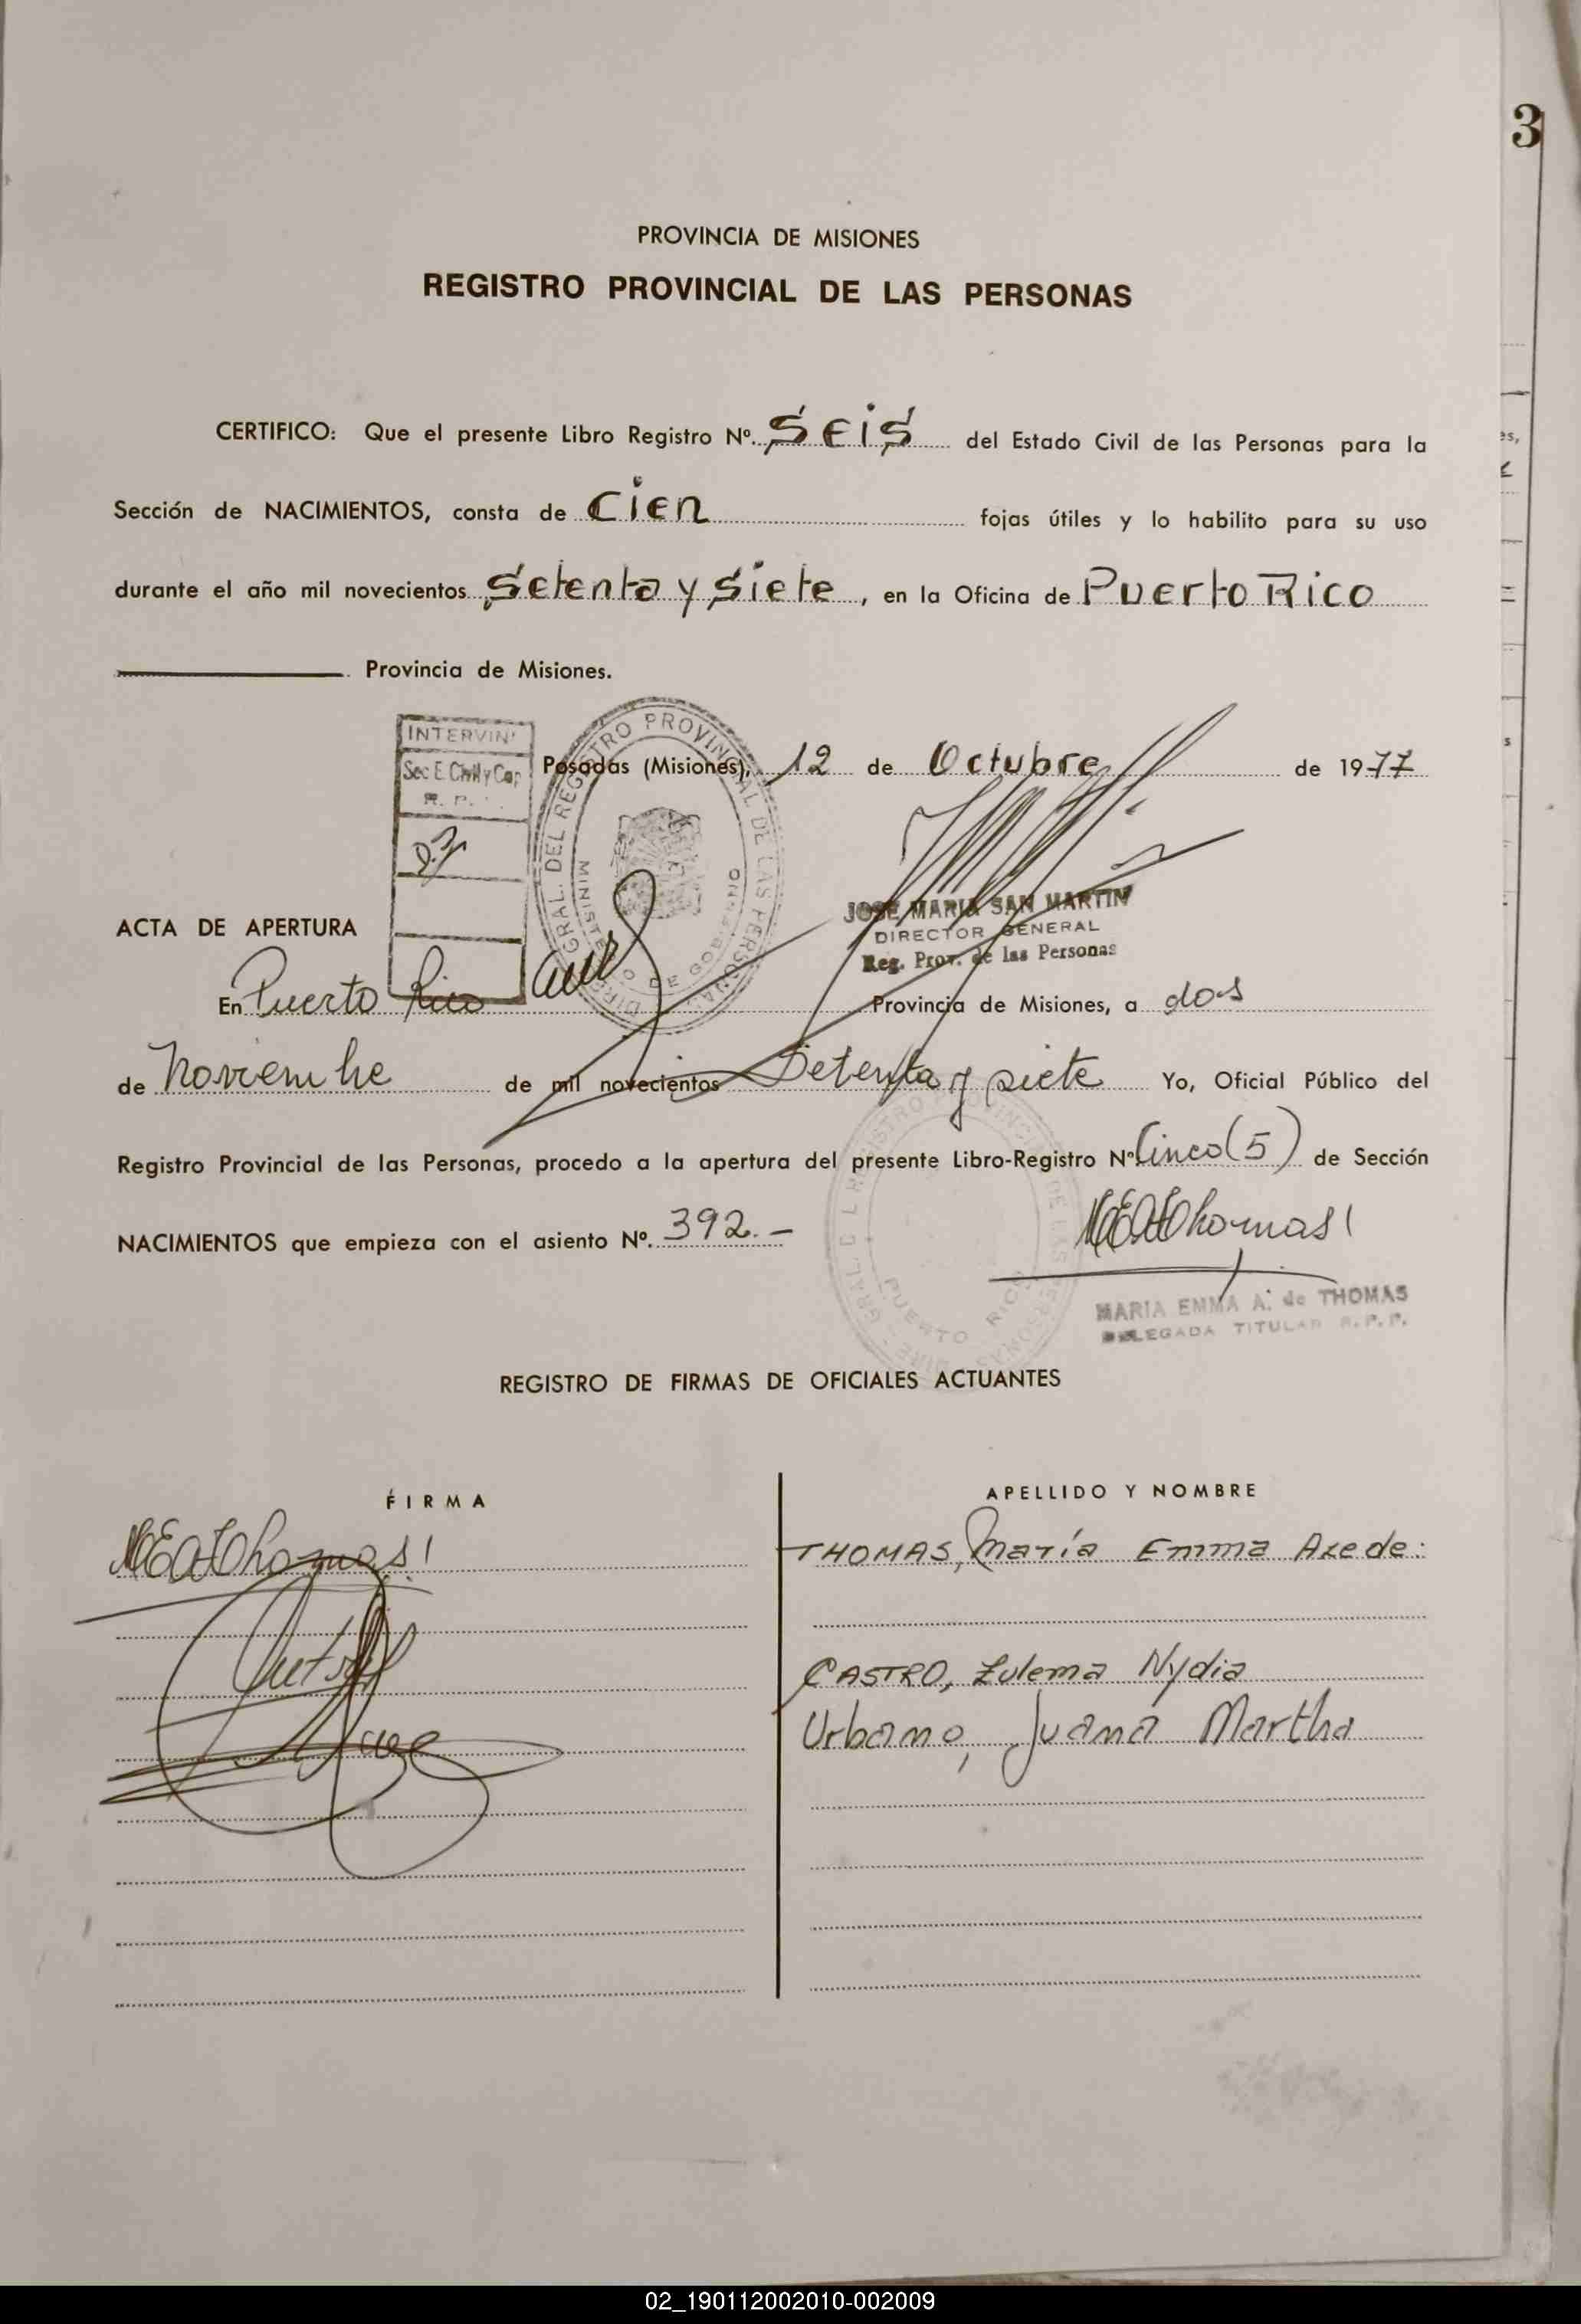 3
PROVINCIA DE MISIONES
REGISTRO PROVINCIAL DE LAS PERSONAS
CERTIFICO: Que el presente Libro Registro Nº. SEIS del Estado Civil de las Personas para la
Sección de NACIMIENTOS, consta de Cien fojas útiles y lo habilito para su uso
durante el año mil novecientos Setenta y Siete, en la Oficina de Puerto Rico
Provincia de Misiones.
INTERVINI
Sec E. Civil y Cap
R. P.
Posadas (Misiones), 12 de Octubre de 1977
DIREC GRAL. DEL REGISTRO PROVINCIAL DE LAS PERSONAS
MINISTERIO DE GOBIERNO
JOSE MARIA SAN MARTIN
DIRECTOR GENERAL
Reg. Prov. de las Personas
ACTA DE APERTURA
En Puerto Rico Provincia de Misiones, a dos
de Noviembre de mil novecientos Setenta y siete Yo, Oficial Público del
Registro Provincial de las Personas, procedo a la apertura del presente Libro-Registro Nº. Cinco (5) de Sección
NACIMIENTOS que empieza con el asiento Nº. 392.-
MEAThomas
PUERTO RICO
MARIA EMMA A. de THOMAS
DELEGADA TITULAR R.P.P.
REGISTRO DE FIRMAS DE OFICIALES ACTUANTES
FIRMA
APELLIDO Y NOMBRE
MEAThomas
THOMAS, María Emma A de:
CASTRO, Zulema Nydia
Urbano, Juana Martha
02_190112002010-002009